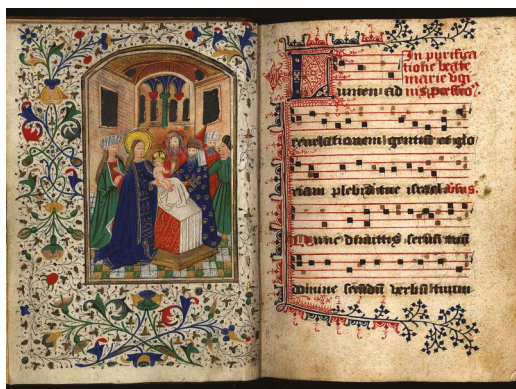 In purifica
tione beate
marie v̄gi
nis, processio.
Lumen ad
revelationem gentiū et glo
riam plebis tue israel. 
Nunc dimittis servū tuū
domine secūdū verbū tuum